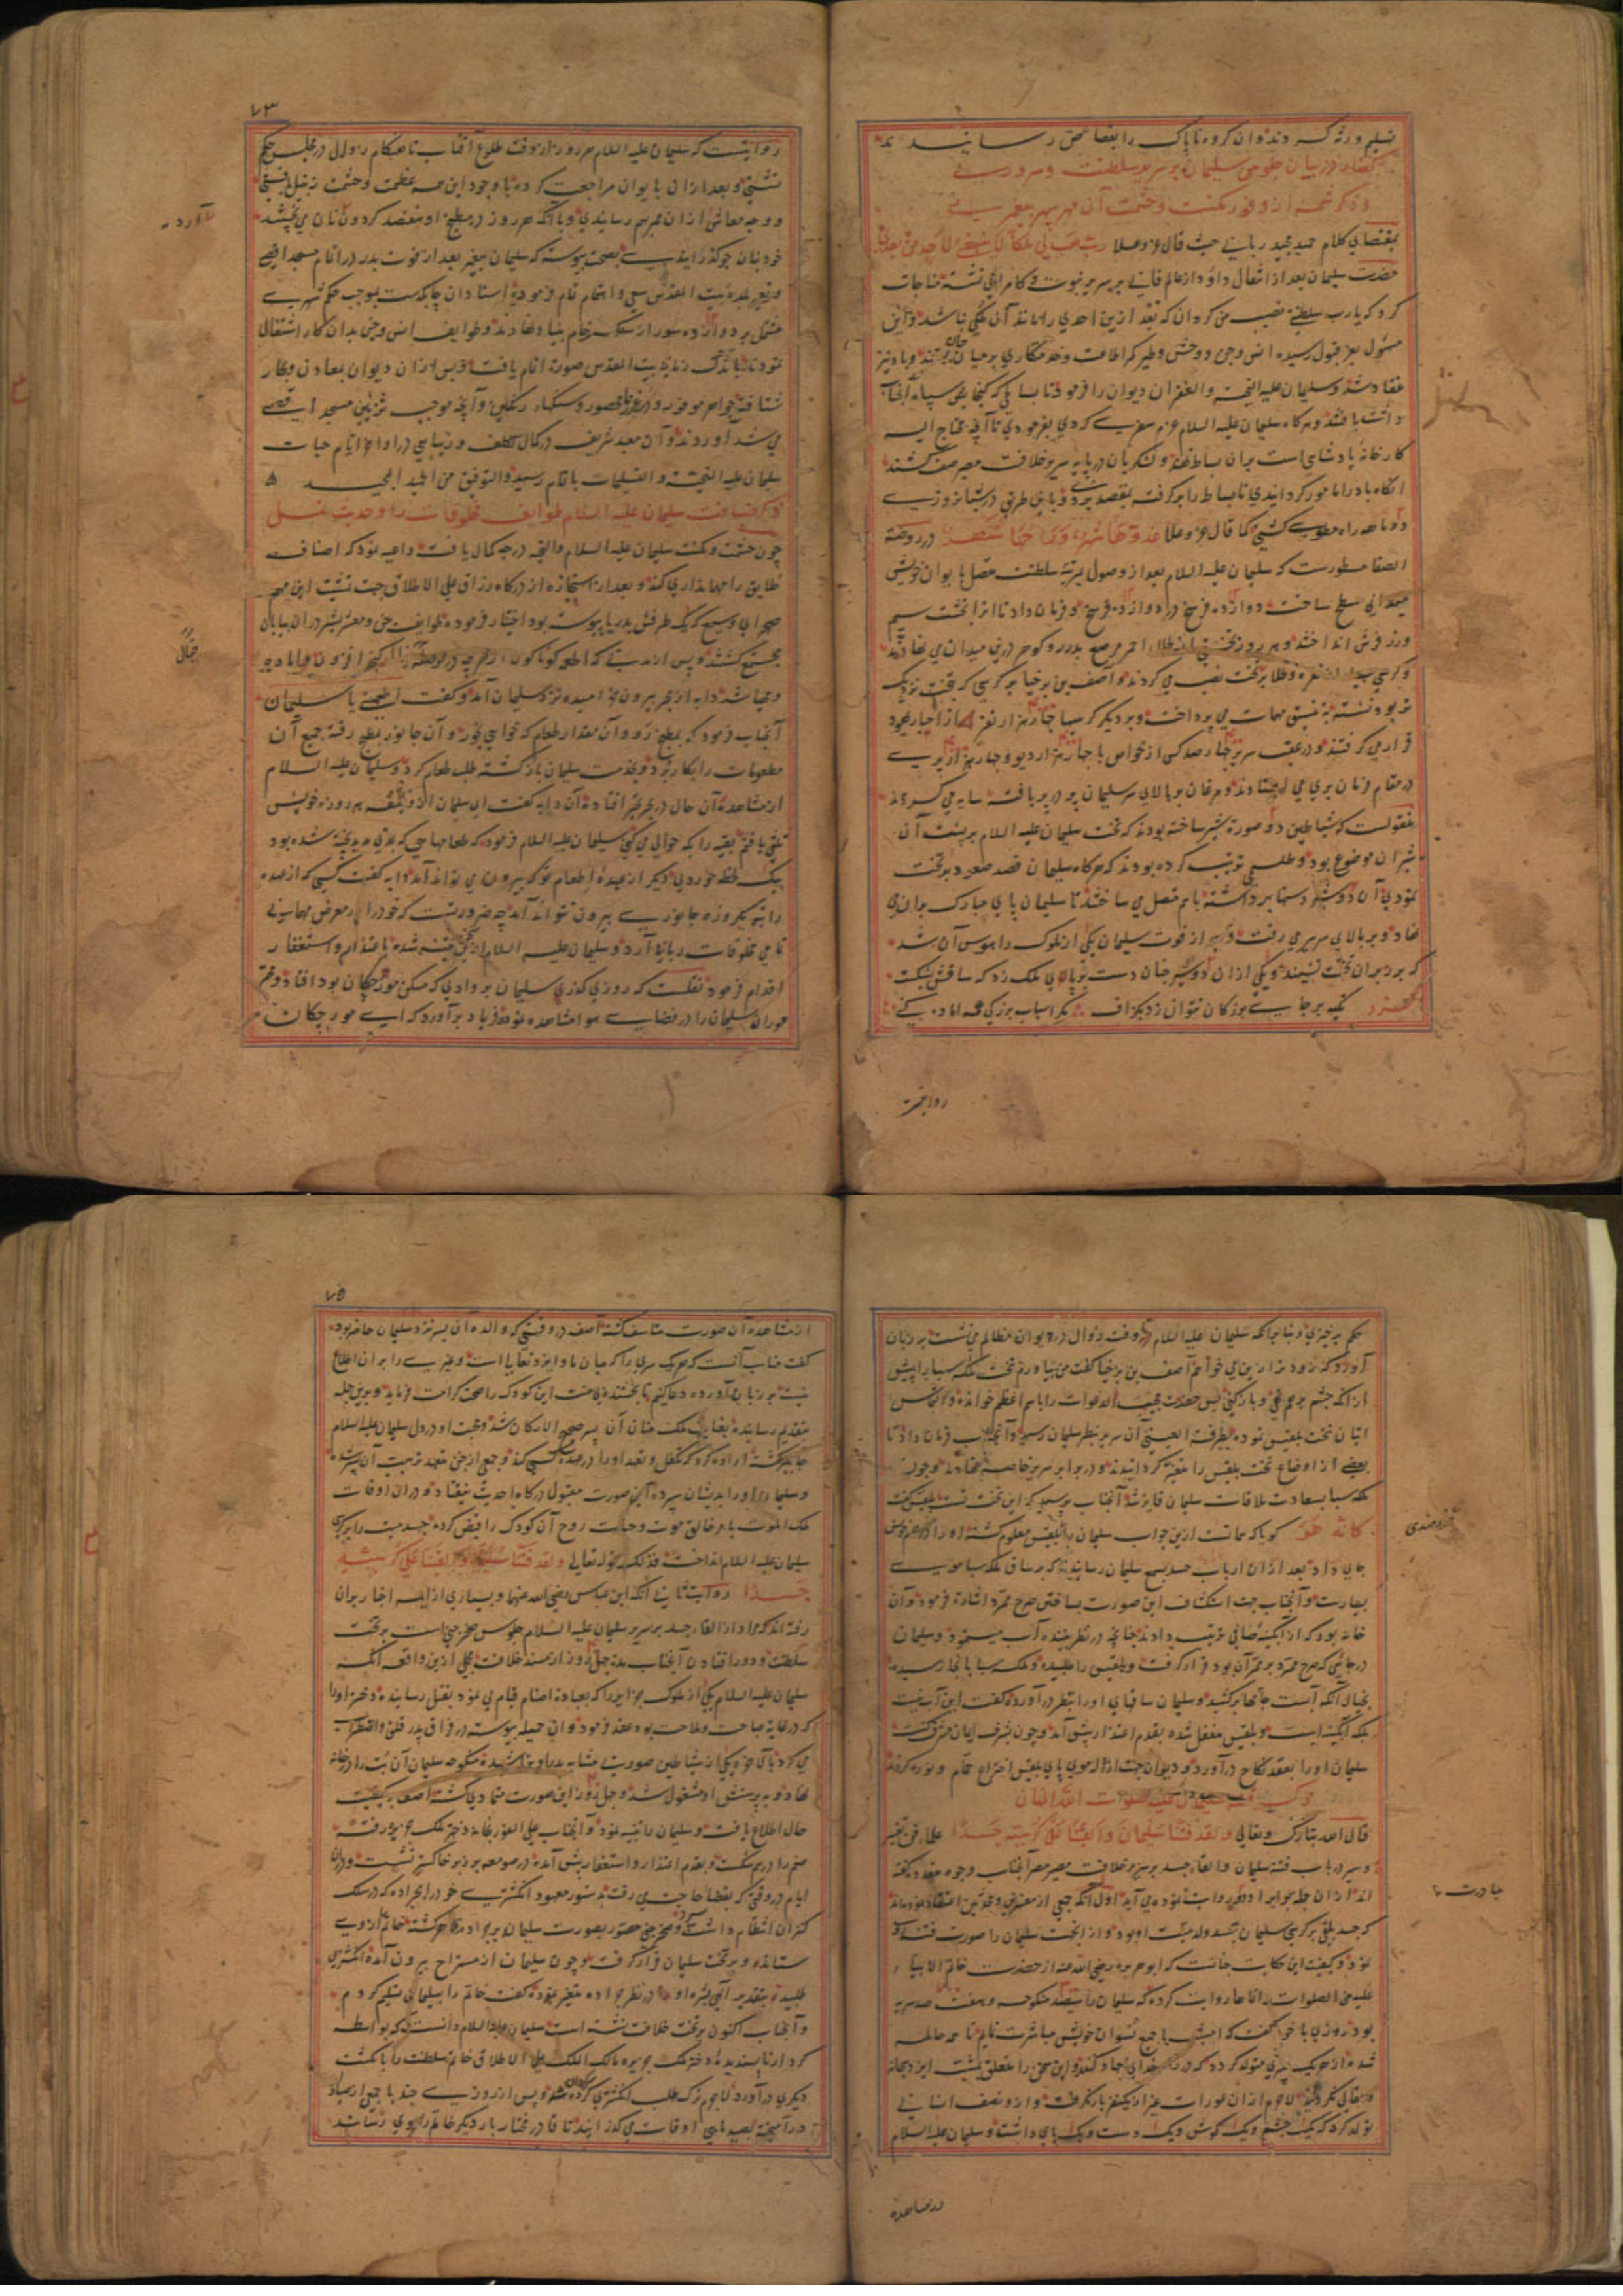 تسلیم ورثه کردند و آن کروه ناپاک را بقصاص رسانیدند
گفتار در بیان جلوس سلیمان بر سریر سلطنت و سروری
و ذکر شمه از وفور مکنت و حشمت آن مهر سپهر پیغمبری
بمقتضای کلام حمید مجید ربانی حیث قال عز و علا رب هب لی ملکا لا ینبغی لاحد من بعدی
حضرت سلیمان بعد از انتقال داود از عالم فانی بر سریر نبوت و کامرانی نشسته مناجات
کرد که یارب سلطنتی نصیب من کردان که بعد ازین احدی را مانند آن ملکی نباشد و این
مسئول بعز قبول رسیده انس و جن و وحش و طیر کمر اطاعت و خدمتکاری بر میان جان بستند و باد نیز
منقاد شد و سلیمان علیه التحیه و الغفران دیوان را فرمود تا بساطی که گنجایش سپاه آنجناب
داشت بافتند و هرکاه سلیمان علیه السلام عزم سفری کردی بفرمودی تا آنچه محتاج الیه
کارخانه پادشاهی است بران بساط نهند و لشکریان در پایه سریر خلافت مصیر صف کشند
آنکاه باد را مامور کردانیدی تا بساط را برکرفته بمقصد بردی و باین طریق در شبانروزی
دو ماهه راه مطوی کشتی کما قال عز و علا غدوها شهر و رواحها شهر در روضة
الصفا مسطورست که سلیمان علیه السلام بعد از وصول بمرتبه سلطنت متصل بایوان خویش
میدانی مسطح ساخت دوازده فرسخ در دوازده فرسخ و فرمان داد تا انرا بخشت سیم
و زر فرش انداختند و هر روز تختی از طلاء احمر مرصع بدر و کوهر در آن میدان می نهادند
و کرسی بسیار از نقره و طلا بر تخت نصب می کردند و آصف بن برخیا بر کرسی که بتخت نزدیک
تر بود نشسته بتنسیق مهمات می پرداخت و بر دیکر کرسیها چهار هزار نفر از احبار یهود
قرار می کرفتند و در عقب سریر چهار صد کس از خواص با چهار هزار دیو و چهار هزار پری
در مقام فرمان بری می ایستادند و مرغان بر بالای سر سلیمان پر در پر بافته سایه می کستردند
منقولست که شیاطین دو صورت شیر ساخته بودند که تخت سلیمان علیه السلام بر پشت آن
شیران موضوع بود و طلسمی ترتیب کرده بودند که هرکاه سلیمان قصد صعود بر تخت
نمودی آن دو شیر دستها برداشته باهم متصل می ساختند تا سلیمان پای مبارک بران می
نهاد و بر بالای سریر می رفت و پس از فوت سلیمان یکی از ملوک را هوس آن شد
که بر بران تخت نشیند و یکی از ان دو شیر چنان دست بر پای ملک زد که ساقش بشکست
تکیه بر جای بزرکان نتوان زد بکزاف مکر اسباب بزرکی همه اماده کنی
روایتست
۷۳
روایتست که سلیمان علیه السلام هر روز از وقت طلوع آفتاب تا هنکام زوال در مجلس حکم
نشستی و بعد ازان بایوان مراجعت کرده با وجود این همه عظمت و حشمت زنبیل بافتی
و وجه معاش از ان ممر بهم رسانیدی و با آنکه هر روز در مطبخ او هفتصد کردون نان می پختند
خود بنان جو کذرانیدی بصحت پیوسته که سلیمان پیغمبر بعد از فوت پدر در اتمام مسجد اقصی
و تعمیر بلده بیت المقدس سعی و اهتمام تمام فرموده استادان چابکدست بموجب حکم شهری
مشتمل بر دوازده سور از سنک رخام بنیاد نهادند و طوایف انس و جن بدان کار اشتغال
نمودند تا باندک زمانی بیت المقدس صورت اتمام یافت و پس ازان دیوان بمعادن و بحار
شتافته جواهر موفور و زر غیر محصور و سنکهاء رنکین و آنچه موجب تزیین مسجد اقصی
می شد آوردند و آن معبد شریف در کمال تکلف و زیبایی در اواخر ایام حیات
سلیمان علیه التحیة و التسلیمات باتمام رسید و التوفیق من الحمید المجید
ذکر ضیافت سلیمان علیه السلام طوایف مخلوقات را و حدیث نمل
چون حشمت و مکنت سلیمان علیه السلام والتحیه درجه کمال یافت داعیه نمود که اصناف
خلایق را مهمانداری کند و بعد از استجازه از درکاه رزاق علی الاطلاق جهت تمشیت این مهم
صحرای وسیع که یک طرفش بدریا پیوسته بود اختیار فرموده طوایف جن و معشر بشر در ان بیابان
مجتمع کشتند و پس از مدتی که اطعمه کوناکون
و مهیا شد دابه از بحر بیرون خرامیده نزد سلیمان آمد و کفت اطعمنی یا سلیمان
آنجناب فرمود که بمطبخ رو و آن مقدار طعام که خواهی بخور و آن جانور بمطبخ رفته جمیع آن
مطعومات را بکار برد و بخدمت سلیمان باز کشته طلب طعام کرد و سلیمان علیه السلام
از مشاهده آن حال در بحر تحیر افتاده آن دابه کفت ای سلیمان من هر روزه خویش
یافتم بقیه را بکه حواله می کنی سلیمان علیه السلام فرمود که طعامهایی که بمدتی مدید پخته شده بود
بیک لحظه خوردی دیکر از عهدهٔ اطعام تو که بیرون می تواند آمد دابه کفت کسی که از عهده
راتبه یکروزه جانوری بیرون نتواند آمد چه ضرورتست که خود را در معرض مهمانی
تمامی مخلوقات ربانی آرد و سلیمان علیه السلام ازین سخن متنبه شده باعتذار و استغفار
اقدام فرمود نقلست که روزی کذر سلیمان بر وادی که مسکن مورچکان بود افتاد و مهتر
موران سلیمان را در فضای هوا مشاهده نموده فریاد برآورد که ای مورچکان
حکم برخیزی و بنابر آنکه سلیمان علیه السلام تا وقت زوال در دیوان مظالم می نشست بر زبان
آورد که زودتر ازین می خواهم آصف بن برخیا کفت من بیاورم تخت ملکه سبا را پیش
از انکه چشم برهم نهی و باز کنی پس حضرت مجیب الدعوات را باسم اعظم خوانده و التماس
اتیان تخت بلقیس نموده بطرفة العینی آن سریر بنظر سلیمان رسید و آنجناب فرمان داد تا
بعضی از اوضاع تخت بلقیس را متغیر کردانیدند و در برابر سریر خاصه نهادند و چون
ملکه سبا بسعادت ملاقات سلیمان فایز شد آنجناب پرسید که این تخت تست بلقیس کفت
کانه هو کویا که همانست ازین جواب سلیمان را عقل بلقیس معلوم کشته او را در حرم خویش
جای داد بعد از ان ارباب حسد بسمع سلیمان رسانیدند که بر ساق ملکه سبا موی
بسیارست و آنجناب جهت استکشاف این صورت بساختن صرح ممرد اشارت فرمود و آن
خانه بود که از آبکینه صافی ترتیب دادند چنانچه در نظر بیننده آب مینمود و سلیمان
در جائی که صرح ممرد بر ممر آن بود قرار کرفت و بلقیس را طلبیده و ملکه سبا بآنجا رسیده
بخیال آنکه آبست جامها برکشید و سلیمان ساقهای او را بنظر درآورده کفت این آب نیست
بلکه آبکینه است و بلقیس منفعل شده بقدم اعتذار پیش آمد و چون بشرف ایمان مشرف کشت
سلیمان او را بعقد نکاح درآورد و دیوان جهت ازاله موی پای بلقیس اختراع حمام و نوره کردند
قال الله تبارک و تعالی و لقد فتنا سلیمان و القینا علی کرسیه جسدا علماء فن تفسیر
و سیر در باب فتنه سلیمان و القاء جسد بر سریر خلافت مصیر آنجناب وجوه متعدده کفته
اند از ان جمله بر ایراد دو روایت نموده می آید اول آنکه جمعی از مفسرین و محدثین اعتقاد نموده اند
که جسد ملقی بر کرسی سلیمان جسد ولد میت او بود و از انجهت سلیمان را صورت فتنه روی
نمود و کیفیت این حکایت چنانست که ابو هریره رضی الله عنه از حضرت خاتم الانبیاء
علیه من الصلوات انماها روایت کرده که سلیمان را سیصد منکوحه و هفتصد سریه
بود روزی با خود کفت که امشب با جمیع نسوان خویش مباشرت نمایم تا همه حامله
شده از هر یک پسری متولد کردد که در راه خدای جهاد کنند و این سخن را متعلق بمشیت ایزد سبحانه
و تعالی نکردانید لاجرم از ان عورات غیر از یکنفر بار نکرفت و از و نصف انسانی
تولد کرد که یک چشم و یک کوش و یک دست و یک پای داشت و سلیمان علیه السلام
از مشاهده
۷۵
از مشاهده آن صورت متاسف کشته آصف در وقتی که والده آن پسر نزد سلیمان حاضر بود
کفت مناسب آنست که هر یک سری را که میان ما و ایزد تعالی است و غیری را بر ان اطلاع
نیست بر زبان آورده دعا کنیم تا بخشنده بی منت این کودک را صحت کرامت فرماید و برین جمله
بتقدیم رسانیده بعنایت ملک منان آن پسر صحیح الارکان شد و محبت او در دل سلیمان علیه السلام
جایکیر کشته اراده کرد که تکفل و تعهد او را در عهده کسی کند و جمعی از جن متعهد تربیت آن پسر شده
و سلیمان او را بدیشان سپرده این صورت مقبول درکاه احدیت نیفتاد و در ان اوقات
ملک الموت بامر خالق موت و حیات روح آن کودک را قبض کرده جسد میت را بر کرسی
سلیمان علیه السلام انداخت فذلک قوله تعالی و لقد فتنا سلیمان و القینا علی کرسیه
جسدا روایت ثانی آنکه ابن عباس رضی الله عنهما و بسیاری از ایمه اخبار بران
رفته اند که مراد از القاء جسد بر سریر سلیمان علیه السلام جلوس صخر جنی است بر تخت
سلطنت و دور افتادن آنجناب مدت چهل روز از مسند خلافت مجمل ازین واقعه آنکه
سلیمان علیه السلام یکی از ملوک جزایر را که بعبادت اصنام قیام می نمود بقتل رسانیده دختر او را
که در غایت صباحت و ملاحت بود عقد فرمود و ان جمیله پیوسته در فراق پدر قلق و اضطراب
می کرد بالاخره یکی از شیاطین صورتی مشابه پدر او تراشیده منکوحه سلیمان آن بت را در خانه
نهاد و به پرستش او مشغول شد و چهل روز این صورت تمادی کشته آصف بر کیفیت
حال اطلاع یافت و سلیمان را تنبیه نمود و آنجناب علی الفور بخانه دختر ملک جزیره رفته
صنم را درهم شکست و بقدم اعتذار و استغفار پیش آمده در صومعه بر زبر خاکستر نشست و دران
ایام در وقتی که بقضا حاجت می رفت بدستور معهود انکشتری خود را بجراده که در سلک
کنیزان انتظام داشت و صخر جنی مصور بصورت سلیمان بر جراده ظاهر کشته خاتم از وی
ستانده و بر تخت سلیمان قرار کرفت و چون سلیمان از مستراح بیرون آمده انکشتری
طلبید بتقدیر آلهی بشره او در نظر جراده متغیر نموده کفت خاتم را بسلیمان تسلیم کردم
و آنجناب اکنون بر تخت خلافت نشسته است سلیمان علیه السلام دانست که بواسطه
کردار ناپسندیدهٔ دختر ملک جزیره مالک الملک علی الاطلاق خاتم سلطنت را بانکشت
دیکری درآورد لاجرم ترک طلب انکشتری کرده و پس از روزی چند با جمعی از صیادان
درآمیخته بصید ماهی اوقات می کذرانید تا قادر مختار بار دیکر خاتم را بوی رسانید